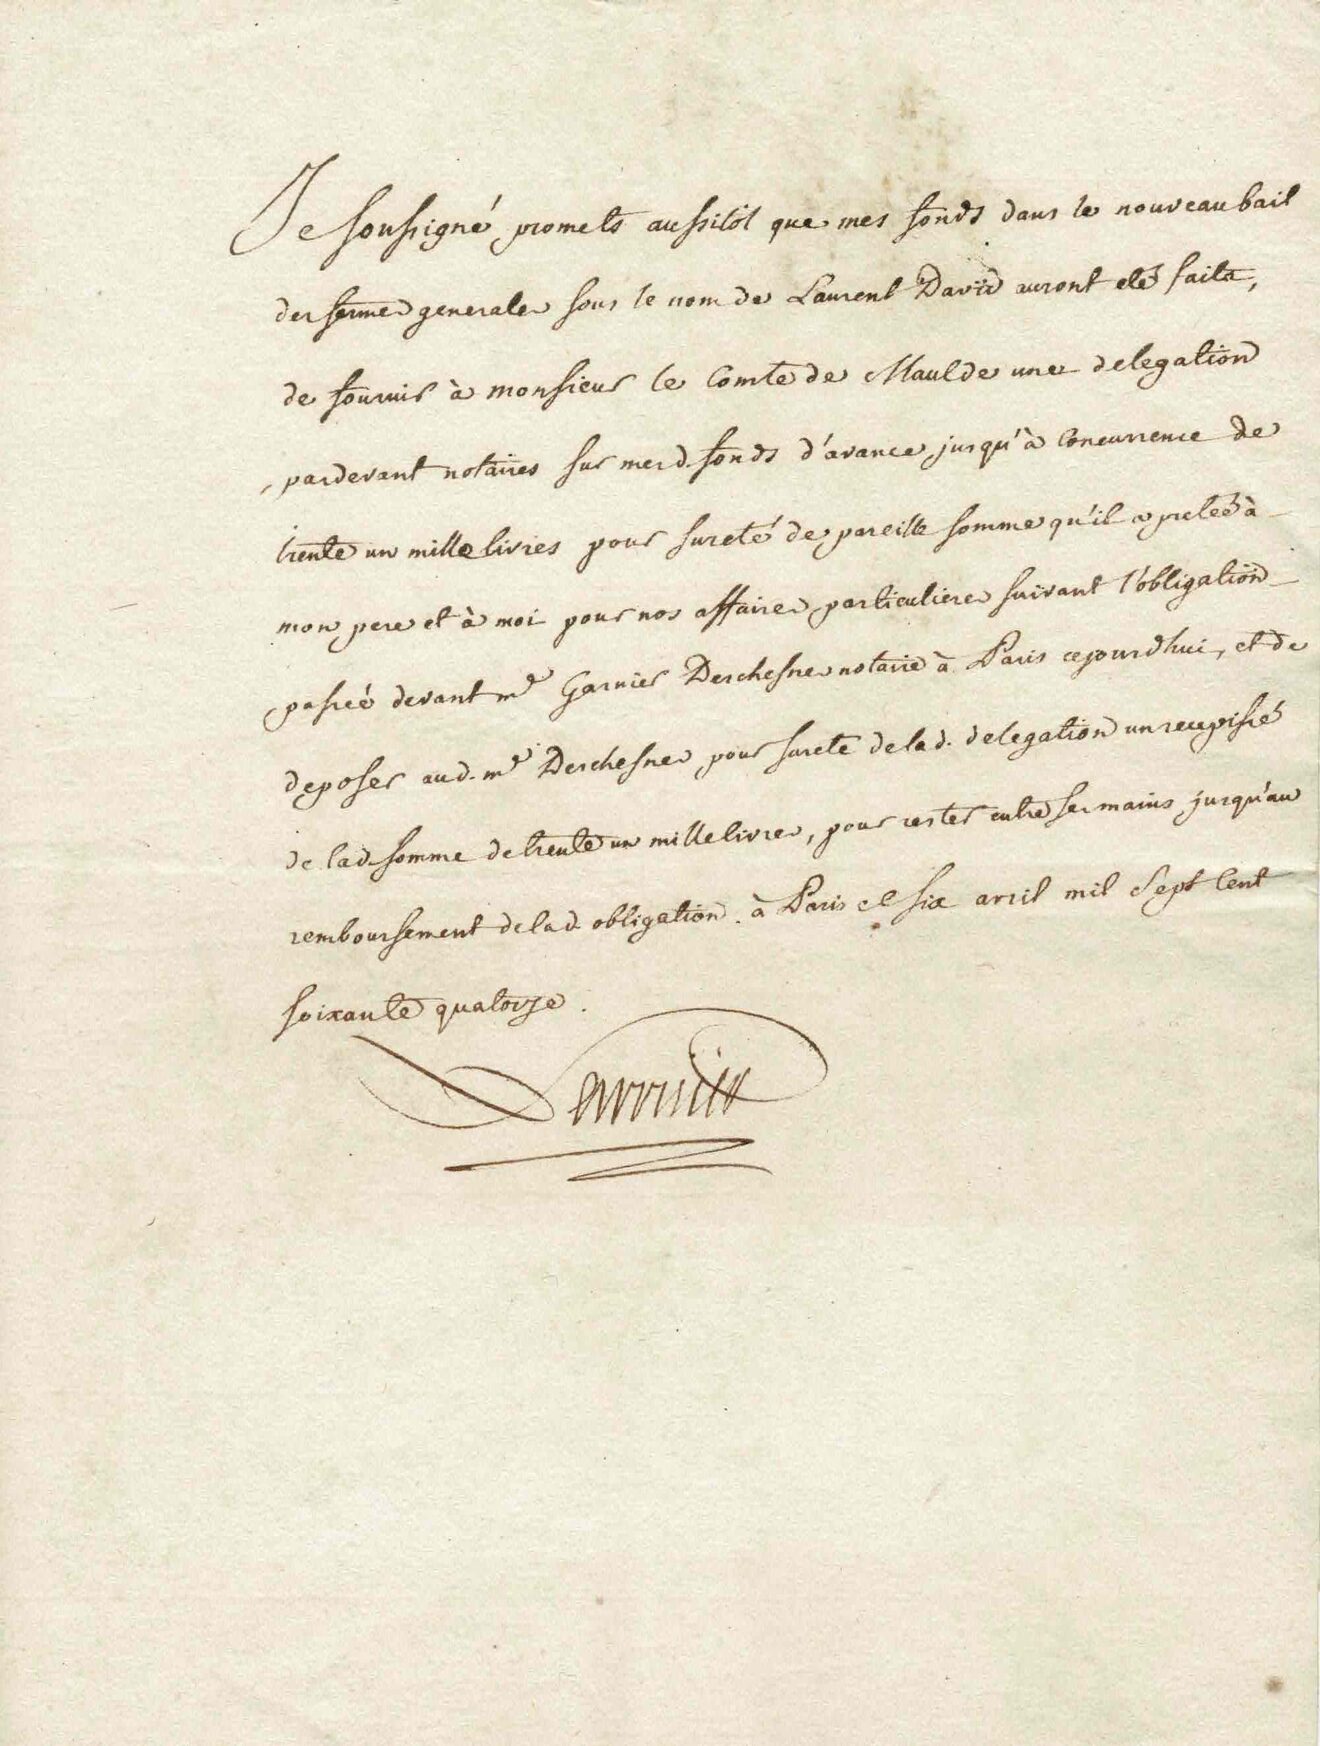 Je soussigné promets aussitôt que mes fonds dans le nouveau bail
des fermes generales sous le nom de Laurent David auront eté faits,
de fournir à monsieur le Comte de Maulde une delegation
pardevant notaires sur mesd. fonds d'avance jusqu'à concurrence de
trente un mille livres pour sureté de pareille somme qu'il a pretée à
mon pere et à moi pour nos affaires particulieres suivant l'obligation
passée devant me Garnier Deschesnes notaire à Paris cejourdhui, et de
deposer aud. me Deschesnes pour sureté de lad. delegation un recepissé
de lad. somme de trente un mille livres, pour rester entre ses mains jusqu'au
remboursement de lad. obligation. à Paris ce six avril mil Sept Cent
soixante quatorze.